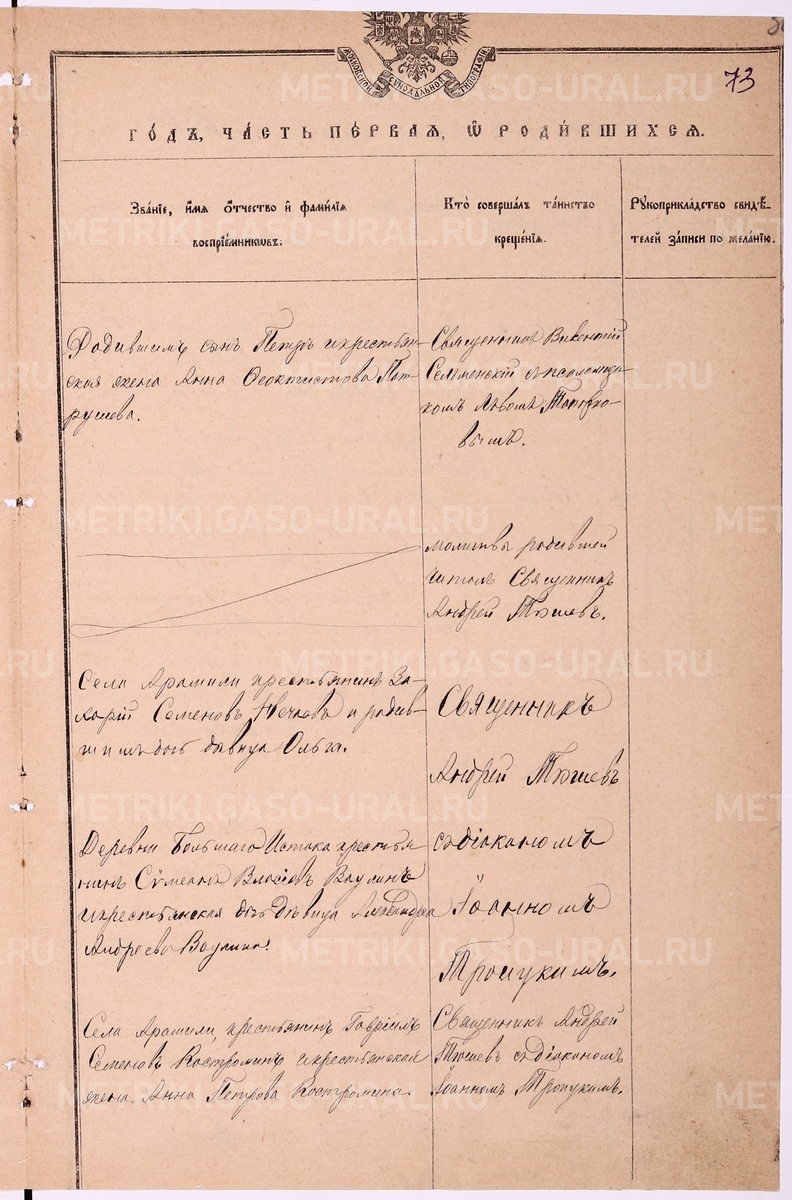 МОСКОВСКОЙ СѴНОДАЛЬНОЙ ТИПОГРАФІИ
73
ГОДЪ, ЧАСТЬ ПЕРВАЯ, Ѿ РОДИВШИХСЯ.
Званіе, имя отчество и фамилія
воспріемниковъ.
Кто совершалъ таинство
крещенія.
Рукоприкладство свидѣ-
телей записи по желанію.
Родившимъ сынъ Петръ и крестьян-
ская жена Анна Ѳеоктистова Пат-
рушева.
Священникъ Викентій
Сельменскій съ псаломщи-
комъ Львомъ
вымъ.
молитвы родившей
читалъ Священникъ
Андрей Тюшевъ.
Села Арамили крестьянинъ За-
харій Семеновъ и родив-
шимъ дочь дѣвица Ольга.
Священникъ
Андрей Тюшевъ
съ діакономъ
Іоанномъ
Троцкимъ.
Деревни Большаго Истока крестья-
нинъ Сѵмеонъ Власіевъ Ваулинъ
и крестьянская дочь дѣвица Александра
Андреева Ваулина.
Села Арамили, крестьянинъ Гавріилъ
Семеновъ Костроминъ и крестьянская
жена Анна Петрова Костромина.
Священникъ Андрей
Тюшевъ съ діакономъ
Іоанномъ Троцкимъ.
METRIKI.GASO-URAL.RU